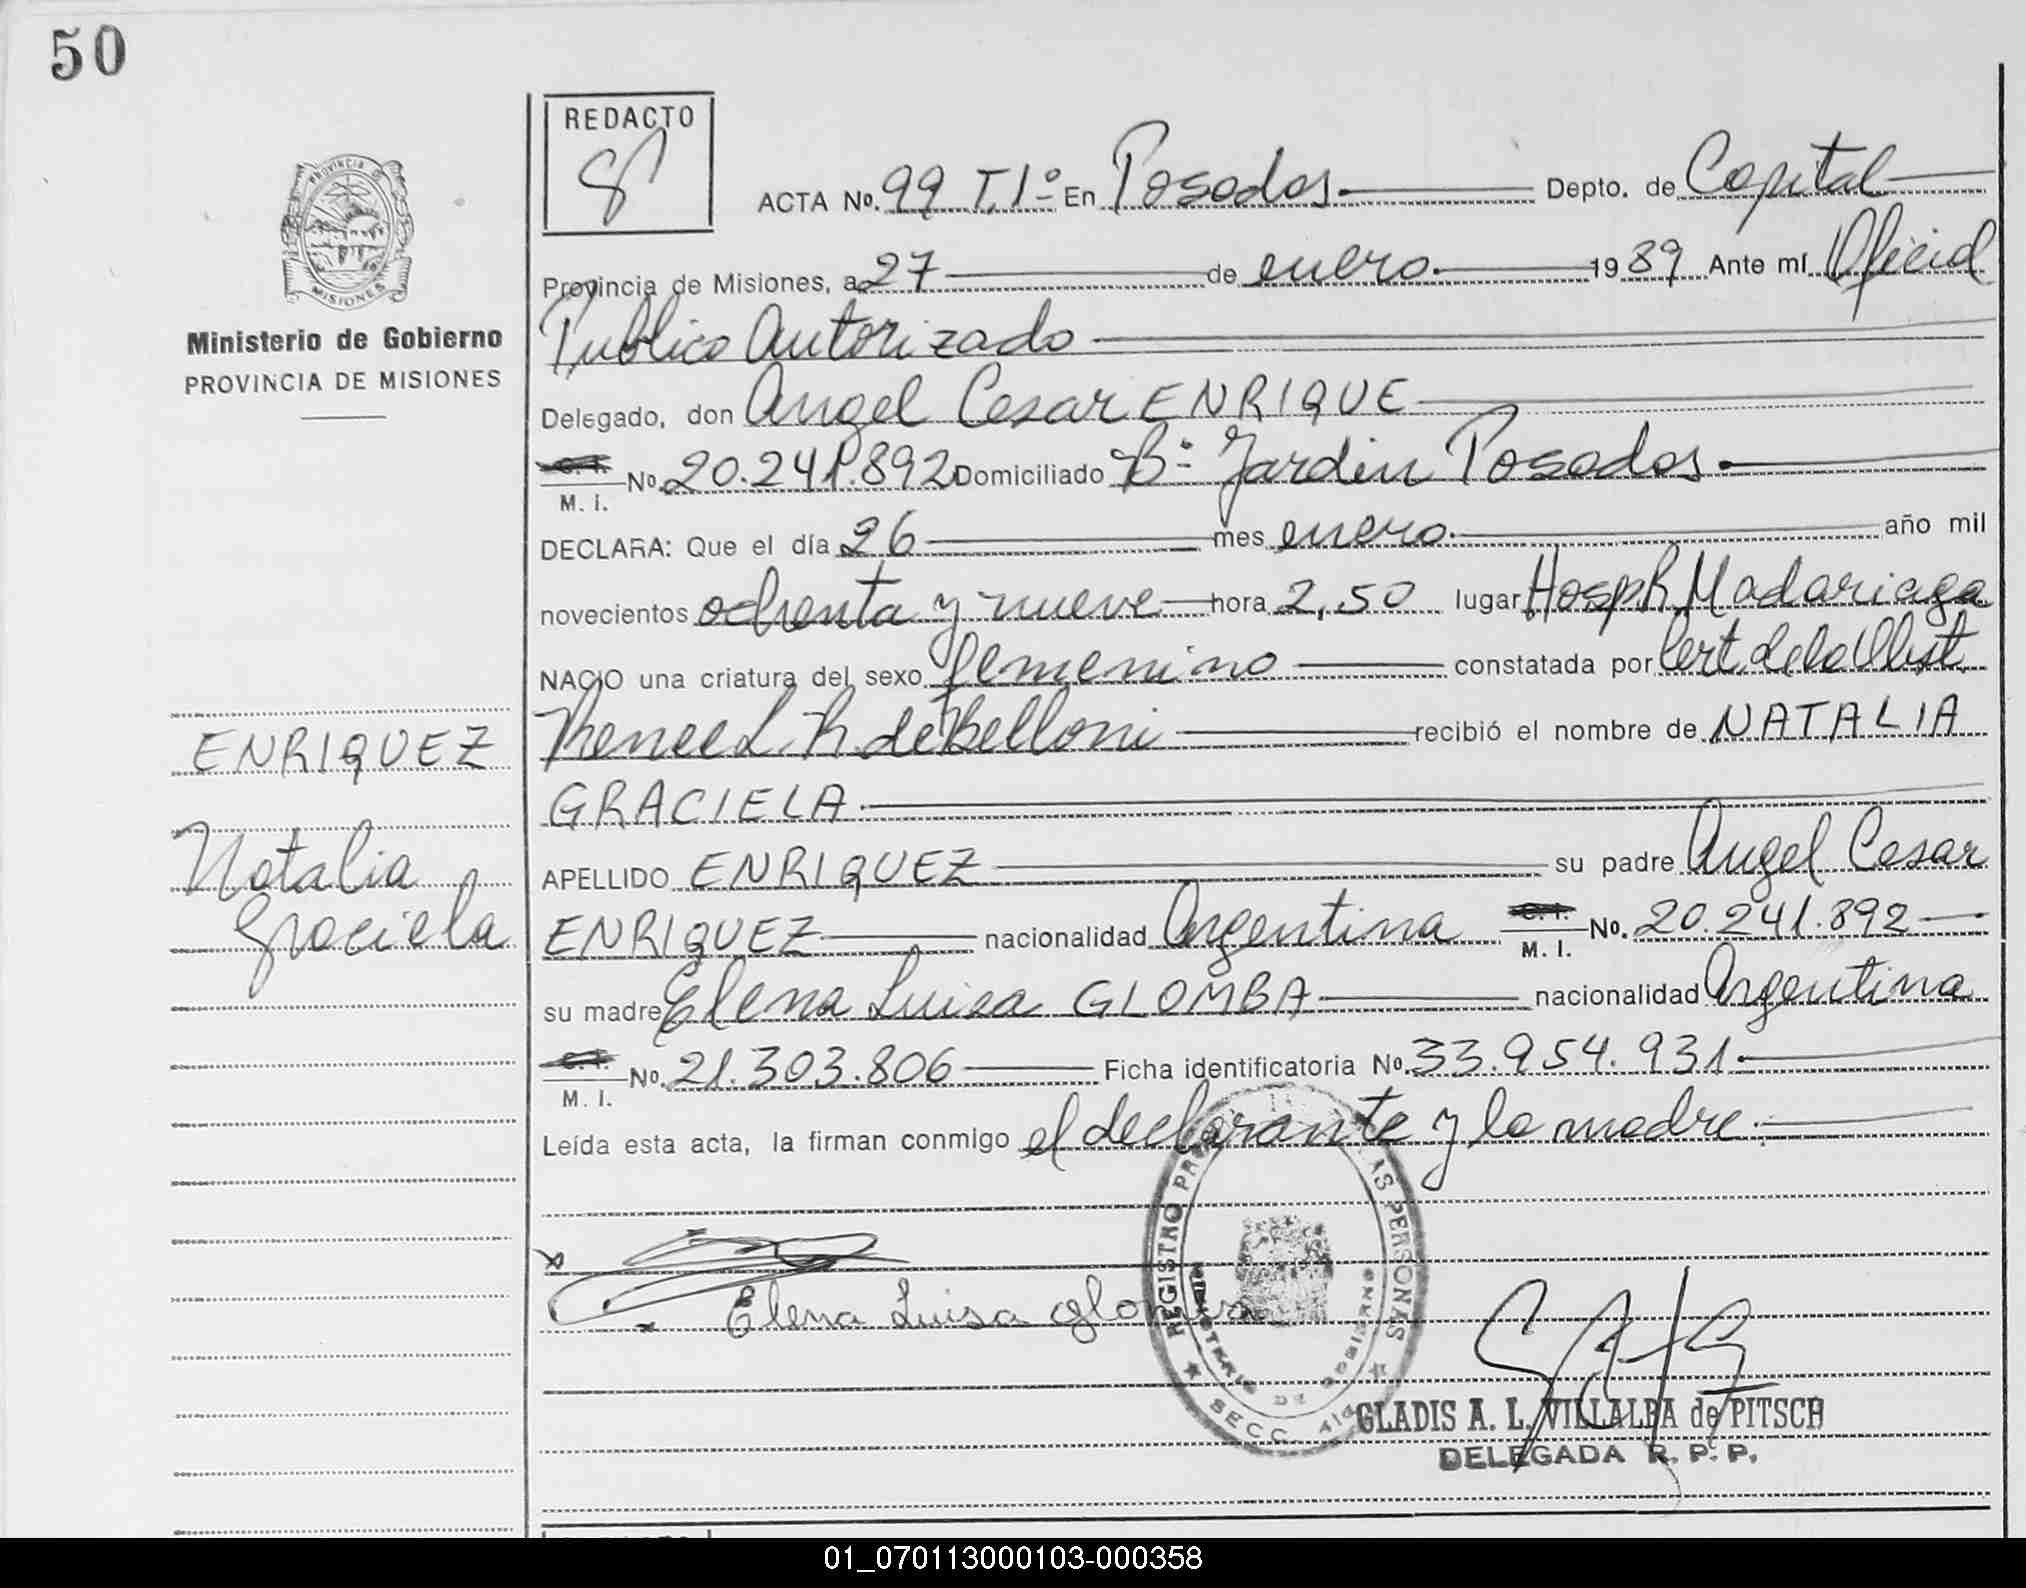 50
REDACTO
PROVINCIA D
MISIONES
Ministerio de Gobierno
PROVINCIA DE MISIONES
ACTA No. 99 T.1º En Posadas Depto. de Capital
Provincia de Misiones, a 27 de enero 1989 Ante mí Oficial
Publico Autorizado
Delegado, don Angel Cesar ENRIQUE
C. I. M. I. No. 20.241.892 Domiciliado Bº Jardin Posadas
DECLARA: Que el día 26 mes enero año mil
novecientos ochenta y nueve hora 2,50 lugar Hosp. R. Madariaga
NACIO una criatura del sexo femenino constatada por Cert. de la Obst.
Renee L. R. de Belloni recibió el nombre de NATALIA
GRACIELA
APELLIDO ENRIQUEZ su padre Angel Cesar
ENRIQUEZ nacionalidad Argentina C. I. M. I. No. 20.241.892
su madre Elena Luisa GLOMBA nacionalidad Argentina
C. I. M. I. No. 21.303.806 Ficha identificatoria No. 33.954.931
Leída esta acta, la firman conmigo el declarante y la madre
ENRIQUEZ
Natalia
Graciela
Elena Luisa Glomba
REGISTRO LAS PERSONAS
MINISTERIO DE GOBIERNO
SECC.
GLADIS A. L. VILLALBA de PITSCH
DELEGADA R. P. P.
01_070113000103-000358